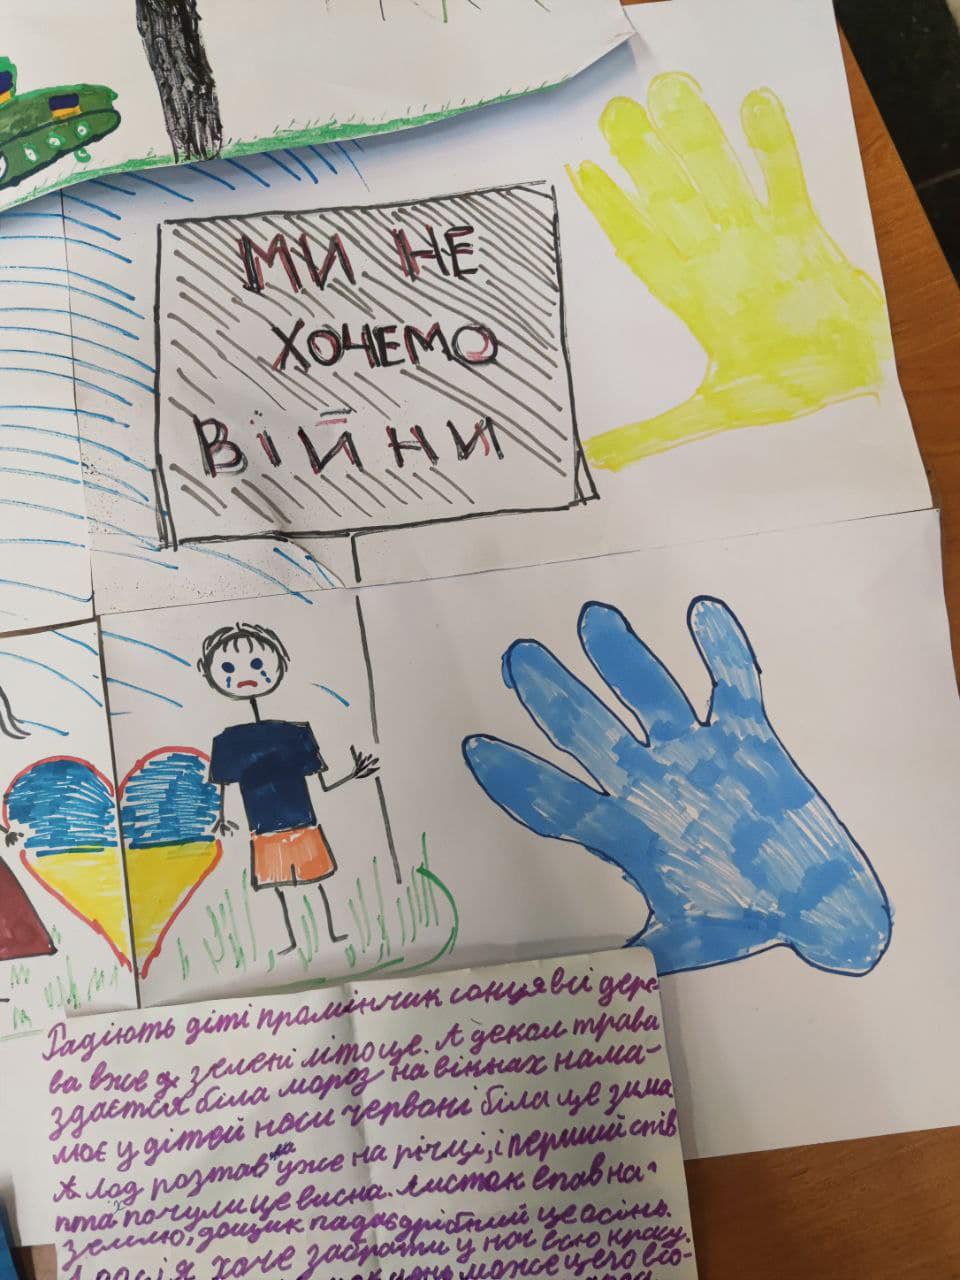 МИ НЕ
ХОЧЕМО
ВІЙНИ
Радіють діті промінчик сонця всі дере
ва вже в зелені літо це. А деколи трава
здається біла мороз на вікнах нама-
лює у дітей носи червоні біла це зима
А лод розтав уже на річці, і перший спів
пта х почули це весна. Листок впав на
землю, дощик падає дрібний це осінь.
хоче забрати у нас всю красу.
може цего